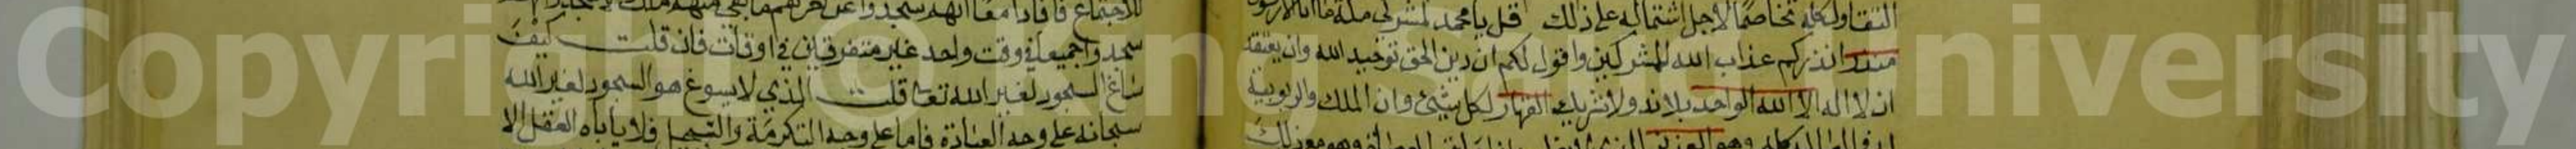 التقاول كله تخاصما لاجل اشتماله على ذلك قل يا محمد لمشركي مكة ما انا الا رسول
منذر انذركم عذاب الله للمشركين واقول لكم ان دين الحق توحيد الله وان يعتقد
ان لا اله الا الله الواحد بلا ند ولا شريك القهار لكل شيئ وان الملك والربوبية
وهو العزيز الذي
للاجتماع فافادا معا انهم سجدوا عن اخرهم ما بقي منهم ملك
سجدوا جميعا في وقت واحد غير متفرقين في اوقات فان قلت كيف
ساغ السجود لغير الله تعا قلت الذي لا يسوغ هو السجود لغير الله
سبحانه على وجه العبادة فاما على وجه التكرمة والتبجيل فلا ياباه العقل الا
Copyright © King University